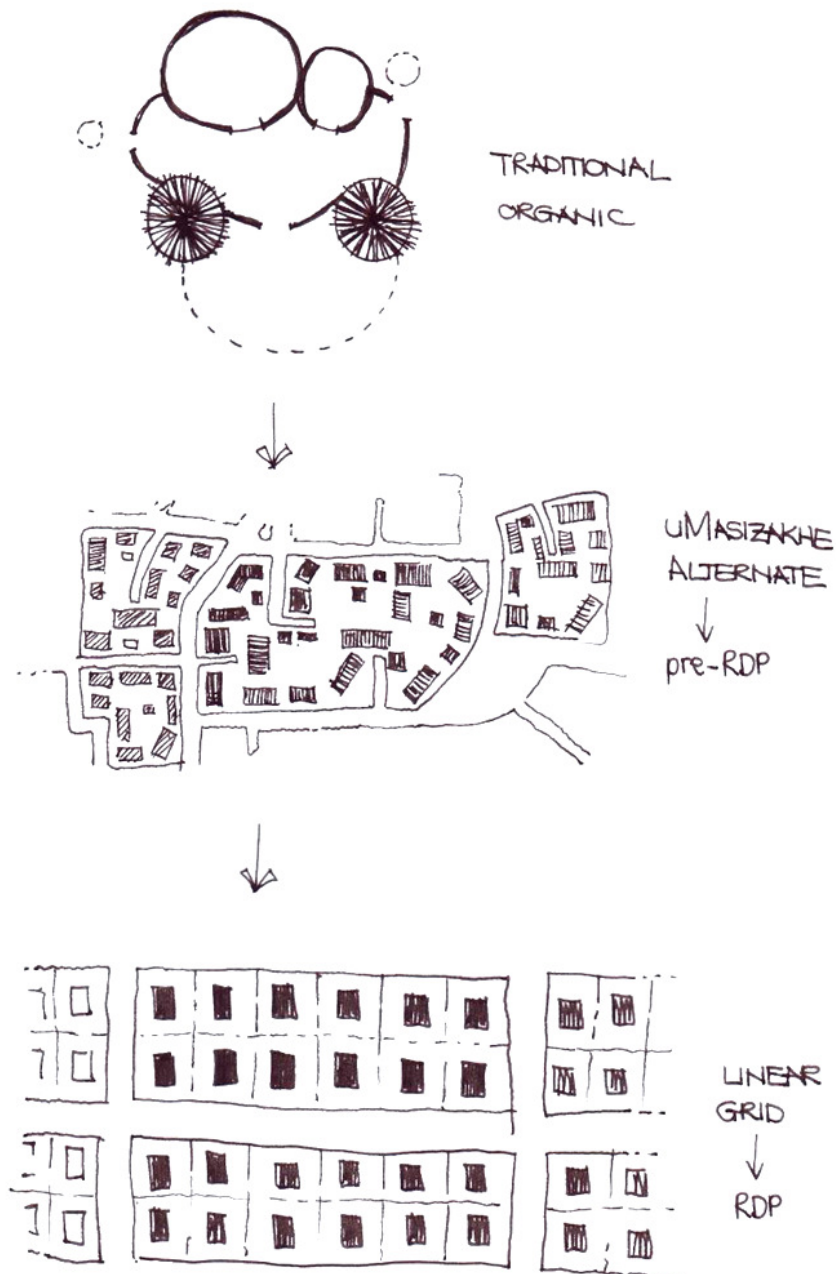 TRADITIONAL
ORGANIC
uMASIZAKHE
ALTERNATE
pre-RDP
LINEAR
GRID
RDP